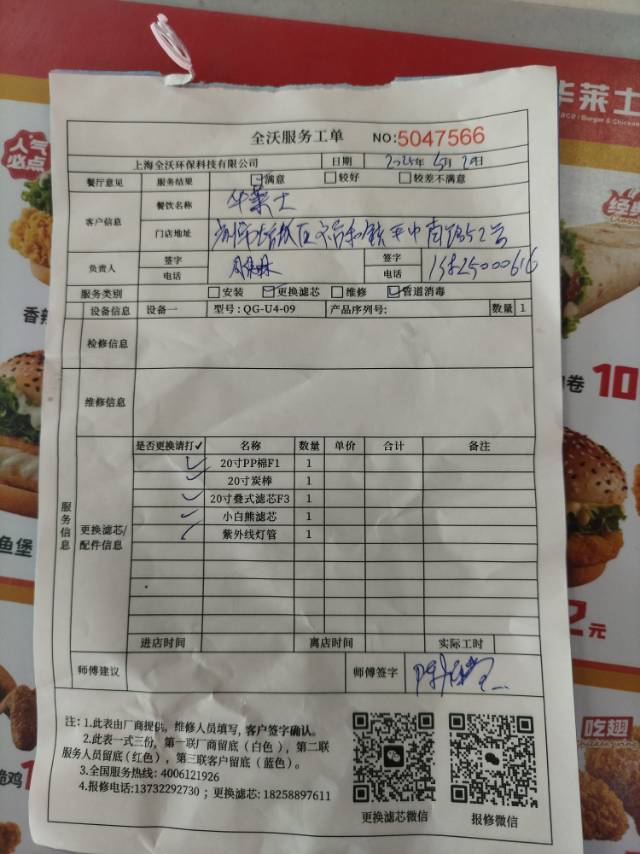 华莱士
全沃服务工单 NO:5047566
上海全沃环保科技有限公司 日期 年 月 日
餐厅意见 服务结果 满意 较好 较差不满意
客户信息 餐饮名称 华莱士
门店地址
负责人 签字 签字
电话 电话
服务类别 安装 更换滤芯 维修 管道消毒
设备信息 设备一 型号:QG-U4-09 产品序列号: 数量 1
检修信息
维修信息
服务信息
更换滤芯/配件信息
是否更换请打✓ 名称 数量 单价 合计 备注
✓ 20寸PP棉F1 1
✓ 20寸炭棒 1
✓ 20寸叠式滤芯F3 1
✓ 小白熊滤芯 1
✓ 紫外线灯管 1
进店时间 离店时间 实际工时
师傅建议 师傅签字
注:1.此表由厂商提供,维修人员填写,客户签字确认。
2.此表一式三份,第一联厂商留底(白色),第二联
服务人员留底(红色),第三联客户留底(蓝色)。
3.全国服务热线:4006121926
4.报修电话:13732292730;更换滤芯:18258897611
更换滤芯微信 报修微信
人气
必点
香辣
鱼堡
卷 10
2元
吃翘